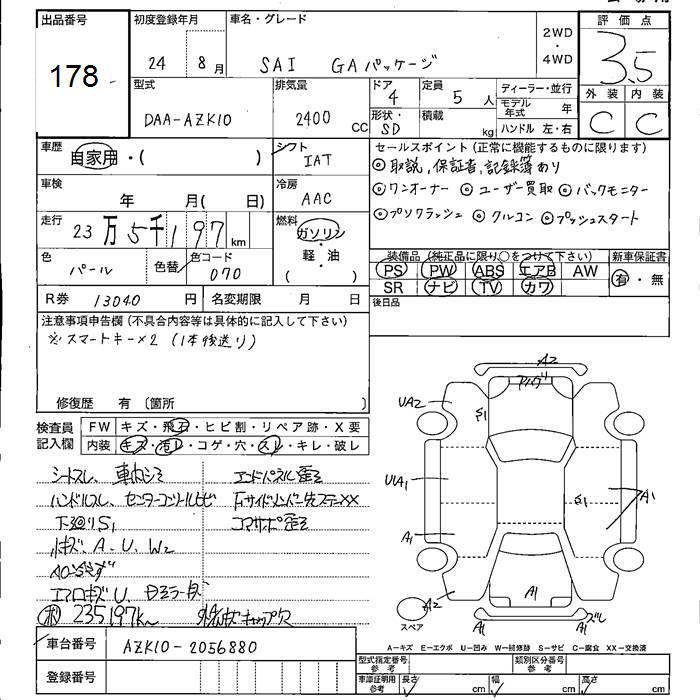 出品番号
178
初度登録年月
24
8 月
車名・グレード
SAI GAパッケージ
2WD
・
4WD
評価点
3.5
外装 内装
C C
型式
DAA-AZK10
排気量
2400 CC
ドア
4
形状・
SD
定員
5 人
積載
kg
ディーラー・並行
モデル年式 年
ハンドル 左・右
車歴
自家用・( )
シフト
IAT
車検
年 月( 日)
冷房
AAC
走行
23万5千197km
燃料
ガソリン
・
軽・油
( )
色
パール
色替
色コード
070
R券 13040 円
名変期限 月 日
セールスポイント (正常に機能するものに限ります)
◎取説,保証書,記録簿あり
◎ワンオーナー ◎ユーザー買取 ◎バックモニター
◎プリクラッシュ ◎クルコン ◎プッシュスタート
装備品 (純正品に限り○をつけて下さい)
新車保証書
PS PW ABS エアB AW
SR ナビ TV カワ
有・無
後日品
注意事項申告欄 (不具合内容等は具体的に記入して下さい)
※スマートキー×2 (1本後送り)
修復歴 有 〔箇所
検査員記入欄
FW キズ・飛石・ヒビ割・リペア跡・X要
内装 キズ・汚れ・コゲ・穴・スレ・キレ・破レ
シートスレ、車内シミ
ハンドルスレ、センターコンソールヒビ
下廻りS1
小キズ、A、U、W2
エアロキズU、
235197km
エンドパネル歪
コアサポ歪
キャップ欠
A2
UA2
S1
UA1
A1
S1
A1
A2
A1
A1
A1
スレ
スペア
A−キズ E−エクボ U−凹み W−補修跡 S−サビ C−腐食 XX−交換済
車台番号
AZK10-2056880
登録番号
型式指定番号
参考
類別区分番号
参考
車庫証明用
参考
長さ cm
幅 cm
高さ cm